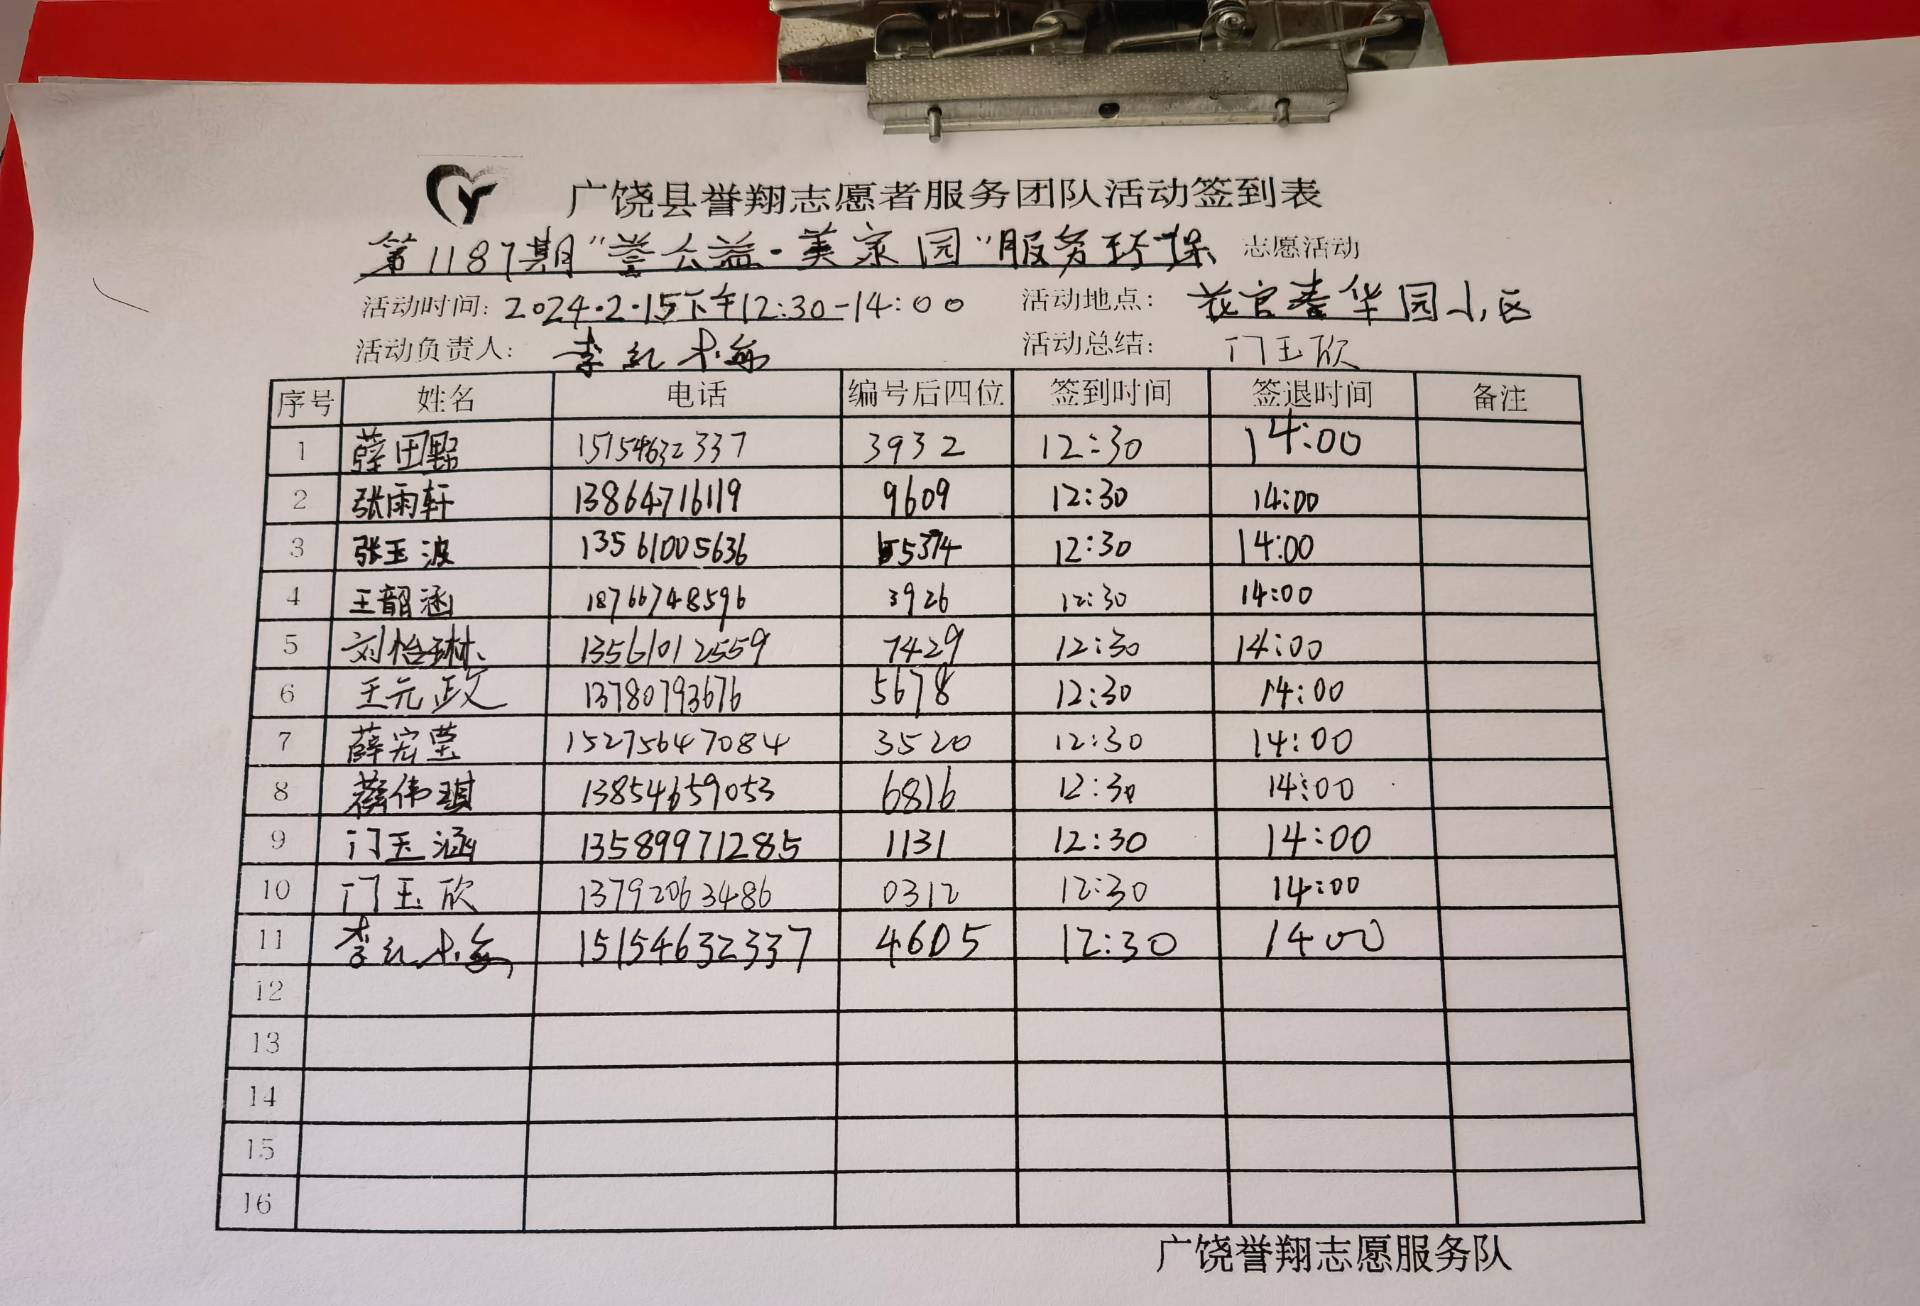 广饶县誉翔志愿者服务团队活动签到表
第1187期"誉公益·美家园"服务环保 志愿活动
活动时间: 2024.2.15下午12:30-14:00 活动地点: 花官春华园小区
活动负责人: 李红梅 活动总结: 门玉欣
序号 姓名 电话 编号后四位 签到时间 签退时间 备注
1 薛田野 15154632337 3932 12:30 14:00
2 张雨轩 13864716119 9609 12:30 14:00
3 张玉波 13561005636 5374 12:30 14:00
4 王韶涵 18766748596 3926 12:30 14:00
5 刘怡琳 13561012559 7429 12:30 14:00
6 王元政 13780793676 5678 12:30 14:00
7 薛宏莹 15275647084 3520 12:30 14:00
8 蔡伟琪 13854659053 6816 12:30 14:00
9 门玉涵 13589971285 1131 12:30 14:00
10 门玉欣 13792063486 0312 12:30 14:00
11 李红梅 15154632337 4605 12:30 1400
12
13
14
15
16
广饶誉翔志愿服务队